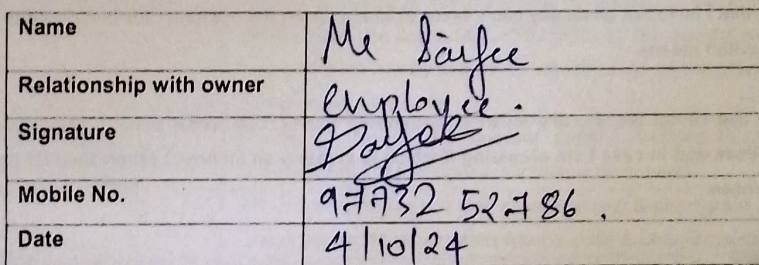 Name Mr
Relationship with owner employee.
Signature
Mobile No. 97732 52786.
Date 4/10/24